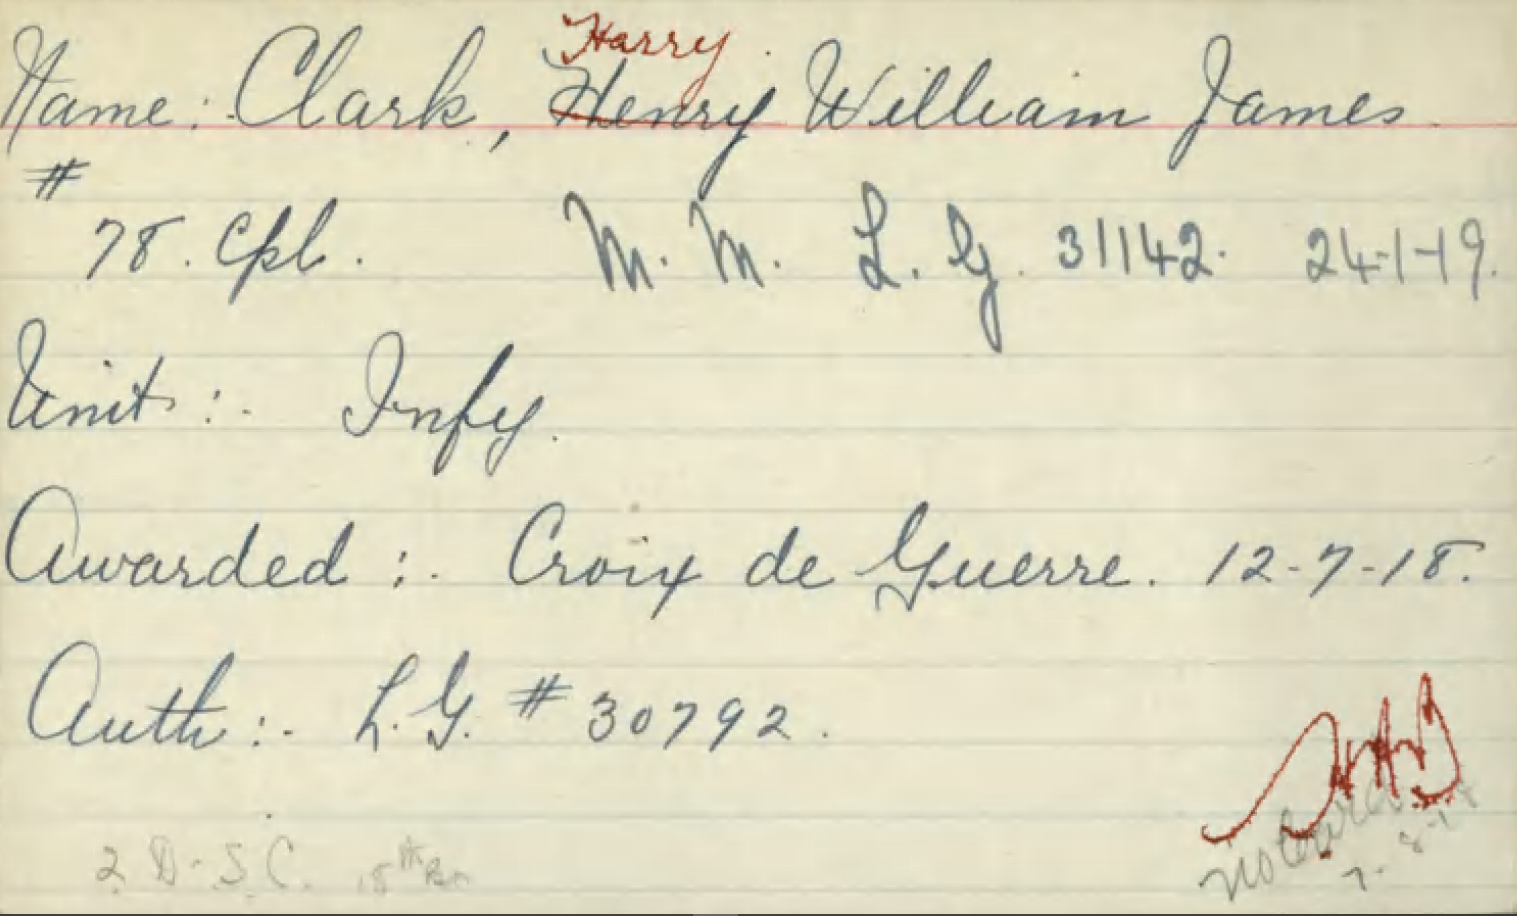 Harry
Name: Clark, Henry William James
#
78. Cpl. M. M. L. G. 31142. 24-1-19.
Unit:- Infy.
Awarded:- Croix de Guerre. 12-7-18.
Auth:- L.G. # 30792.
2. D. S. C. 18th Bn